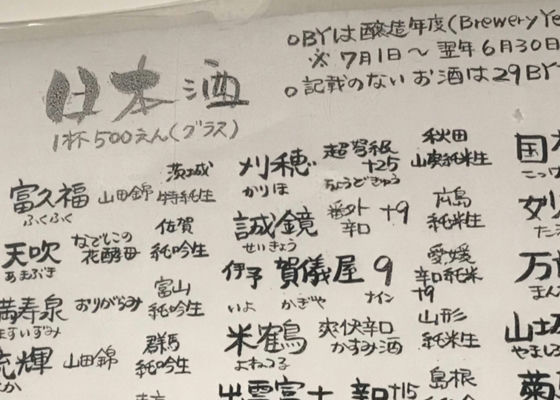 日本酒
1杯500えん(グラス)
○BYは醸造年度(Brewery Ye
※7月1日〜翌年6月30日
○記載のないお酒は29BY
富久福 山田錦 茨城 特純生
ふくふく
天吹 なでしこの花酵母 佐賀 純吟生
あまぶき
満寿泉 おりがらみ 富山 純吟生
ますいずみ
流輝 山田錦 群馬 純吟生
るか
刈穂 超弩級 +25 秋田 山廃純米生
かりほ ちょうどきゅう
誠鏡 番外 辛口 +9 広島 純米生
せいきょう
伊予 賀儀屋 9 愛媛 辛口純米 +9
いよ かぎや ナイン
米鶴 爽快辛口 かすみ酒 山形 純米生
よねつる
出雲富士 辛口+15 島根
国
こっ
妙
たえ
万
まん
山
やましろ
菊